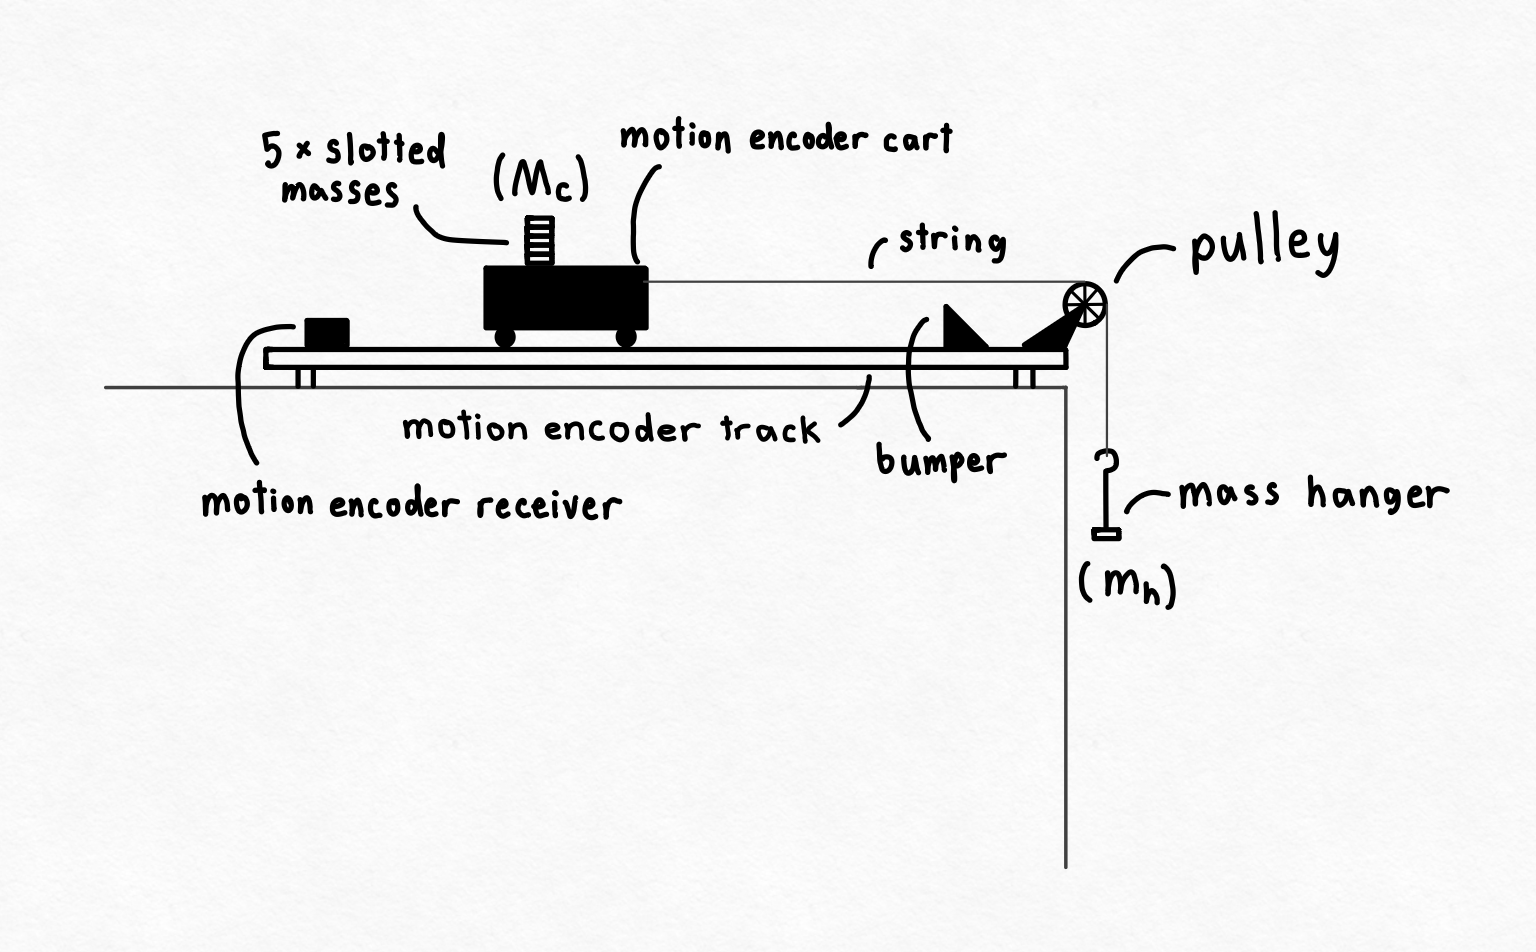 5 x slotted
masses
(Mc)
motion encoder cart
string
pulley
motion encoder track
bumper
motion encoder receiver
mass hanger
(mh)